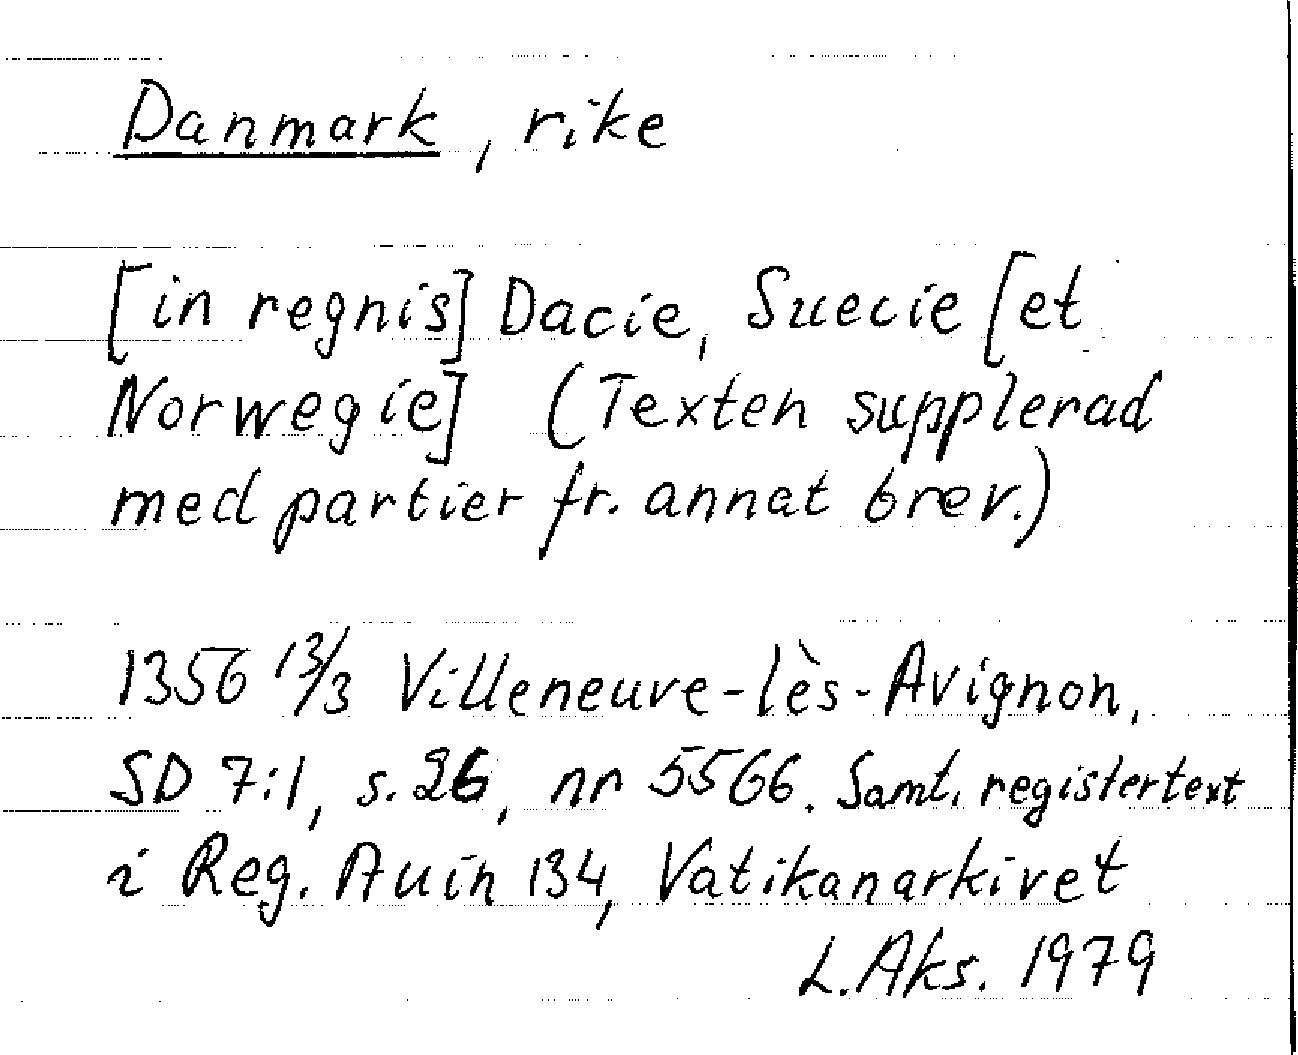 Danmark, rike
[in regnis] Dacie, Suecie [et
Norwegie] (Texten supplerad
med partier fr. annat brev.)
1356 13/3 Villeneuve-lès-Avignon,
SD 7:1, s. 26, nr 5566. Samt. registertext
i Reg. Auin 134, Vatikanarkivet
L. Aks. 1979